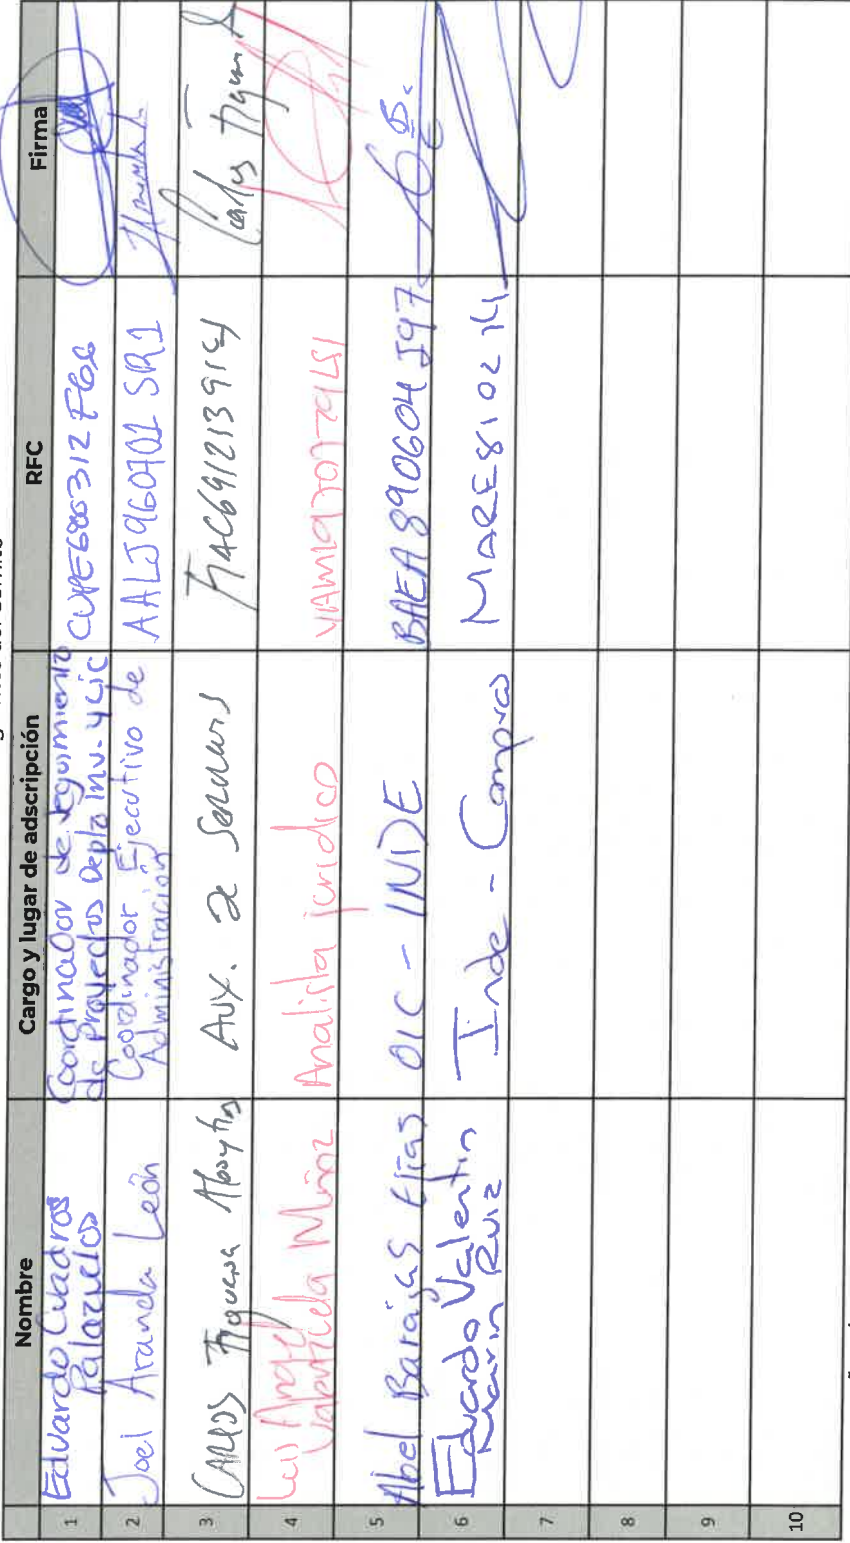 Nombre
Cargo y lugar de adscripción
RFC
Firma
1
Eduardo Cuadros
Palazuelos
Coordinador de seguimiento
de Proyectos Depto Inv. y Lic
2
Joel Aranda León
Coordinador Ejecutivo de
Administración
AALJ960701SR1
3
CARLOS Figueroa
Aux. de
FIAC691213914
Carlos
4
Luis Angel
Valenzuela Muñoz
Analista jurídico
5
Abel Barajas Elías
OIC - INDE
BAEA890604J97
B.
6
Eduardo Valentin
Marin Ruiz
Inde - Compras
MARE810214
7
8
9
10